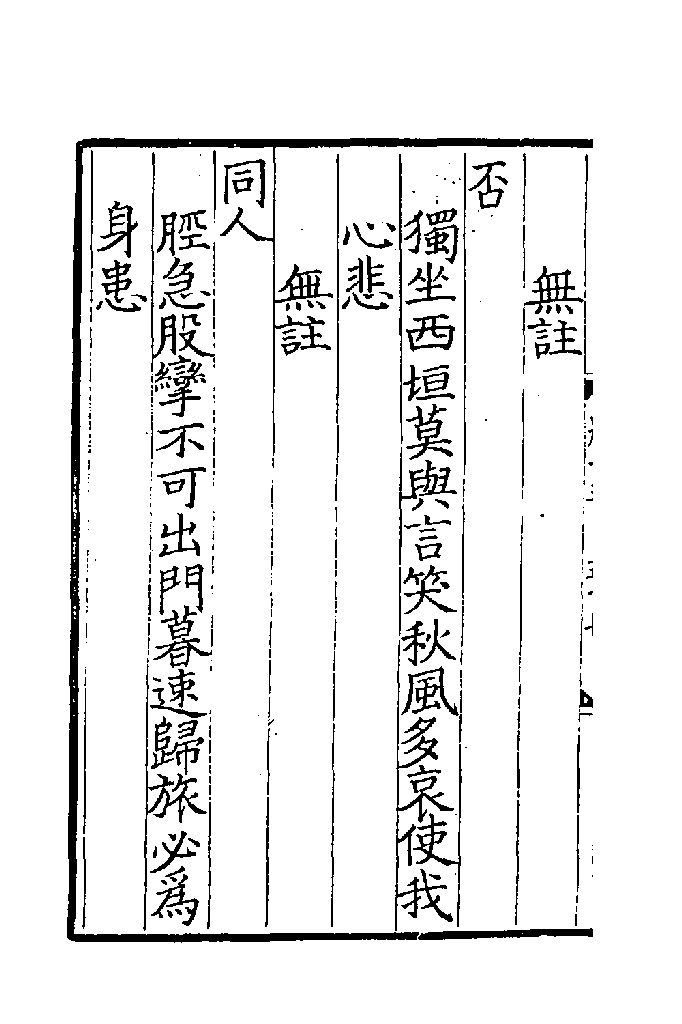 無註
否
獨坐西垣莫與言笑秋風多哀使我
心悲
無註
同人
脛急股攣不可出門暮速歸旅必為
身患